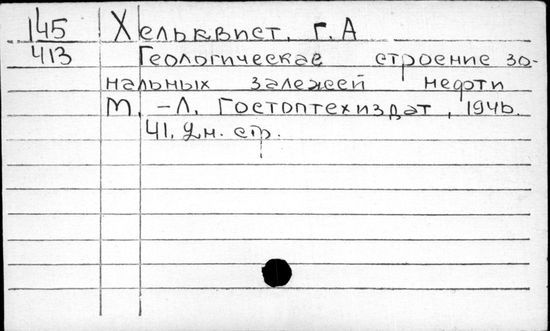 145 Хельквист. Г.А
413 Геологическае строение зо-
нальных залежей нефти
М. -Л. Гостоптехиздат, 1946.
41. 2н. стр.